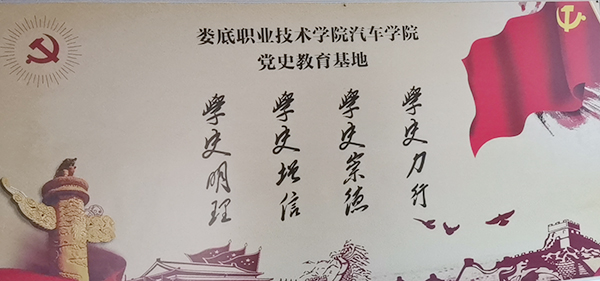 娄底职业技术学院汽车学院
党史教育基地
學史明理
學史增信
學史崇德
學史力行